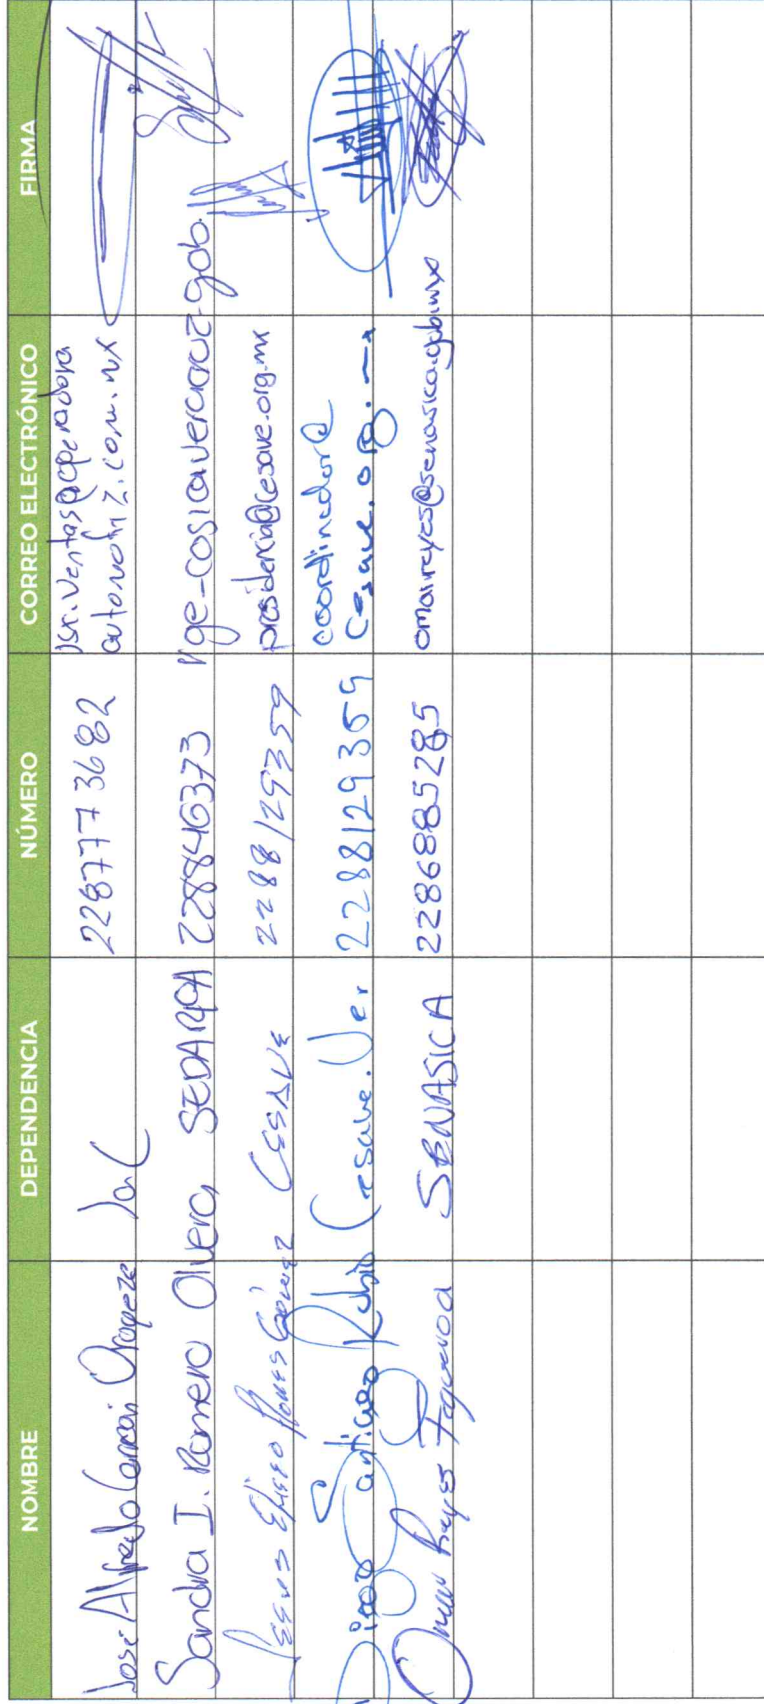 NOMBRE DEPENDENCIA NÚMERO CORREO ELECTRÓNICO FIRMA
José Alfredo Oropeza 2287773682 ventas@operadora
automotriz.com.mx
Sandra I. Romero Olvera SEDARPA 228846373 cosicaveracruz.gob.
Jesus Eliseo Flores Gómez CESAVE 2288129359 presidencia@cesave.org.mx
Diego Santiago Rubio Cesave.Ver 2288129359 coordinador@
cesave.org.mx
Omar Reyes Figueroa SENASICA 2286885285 omar.reyes@senasica.gob.mx